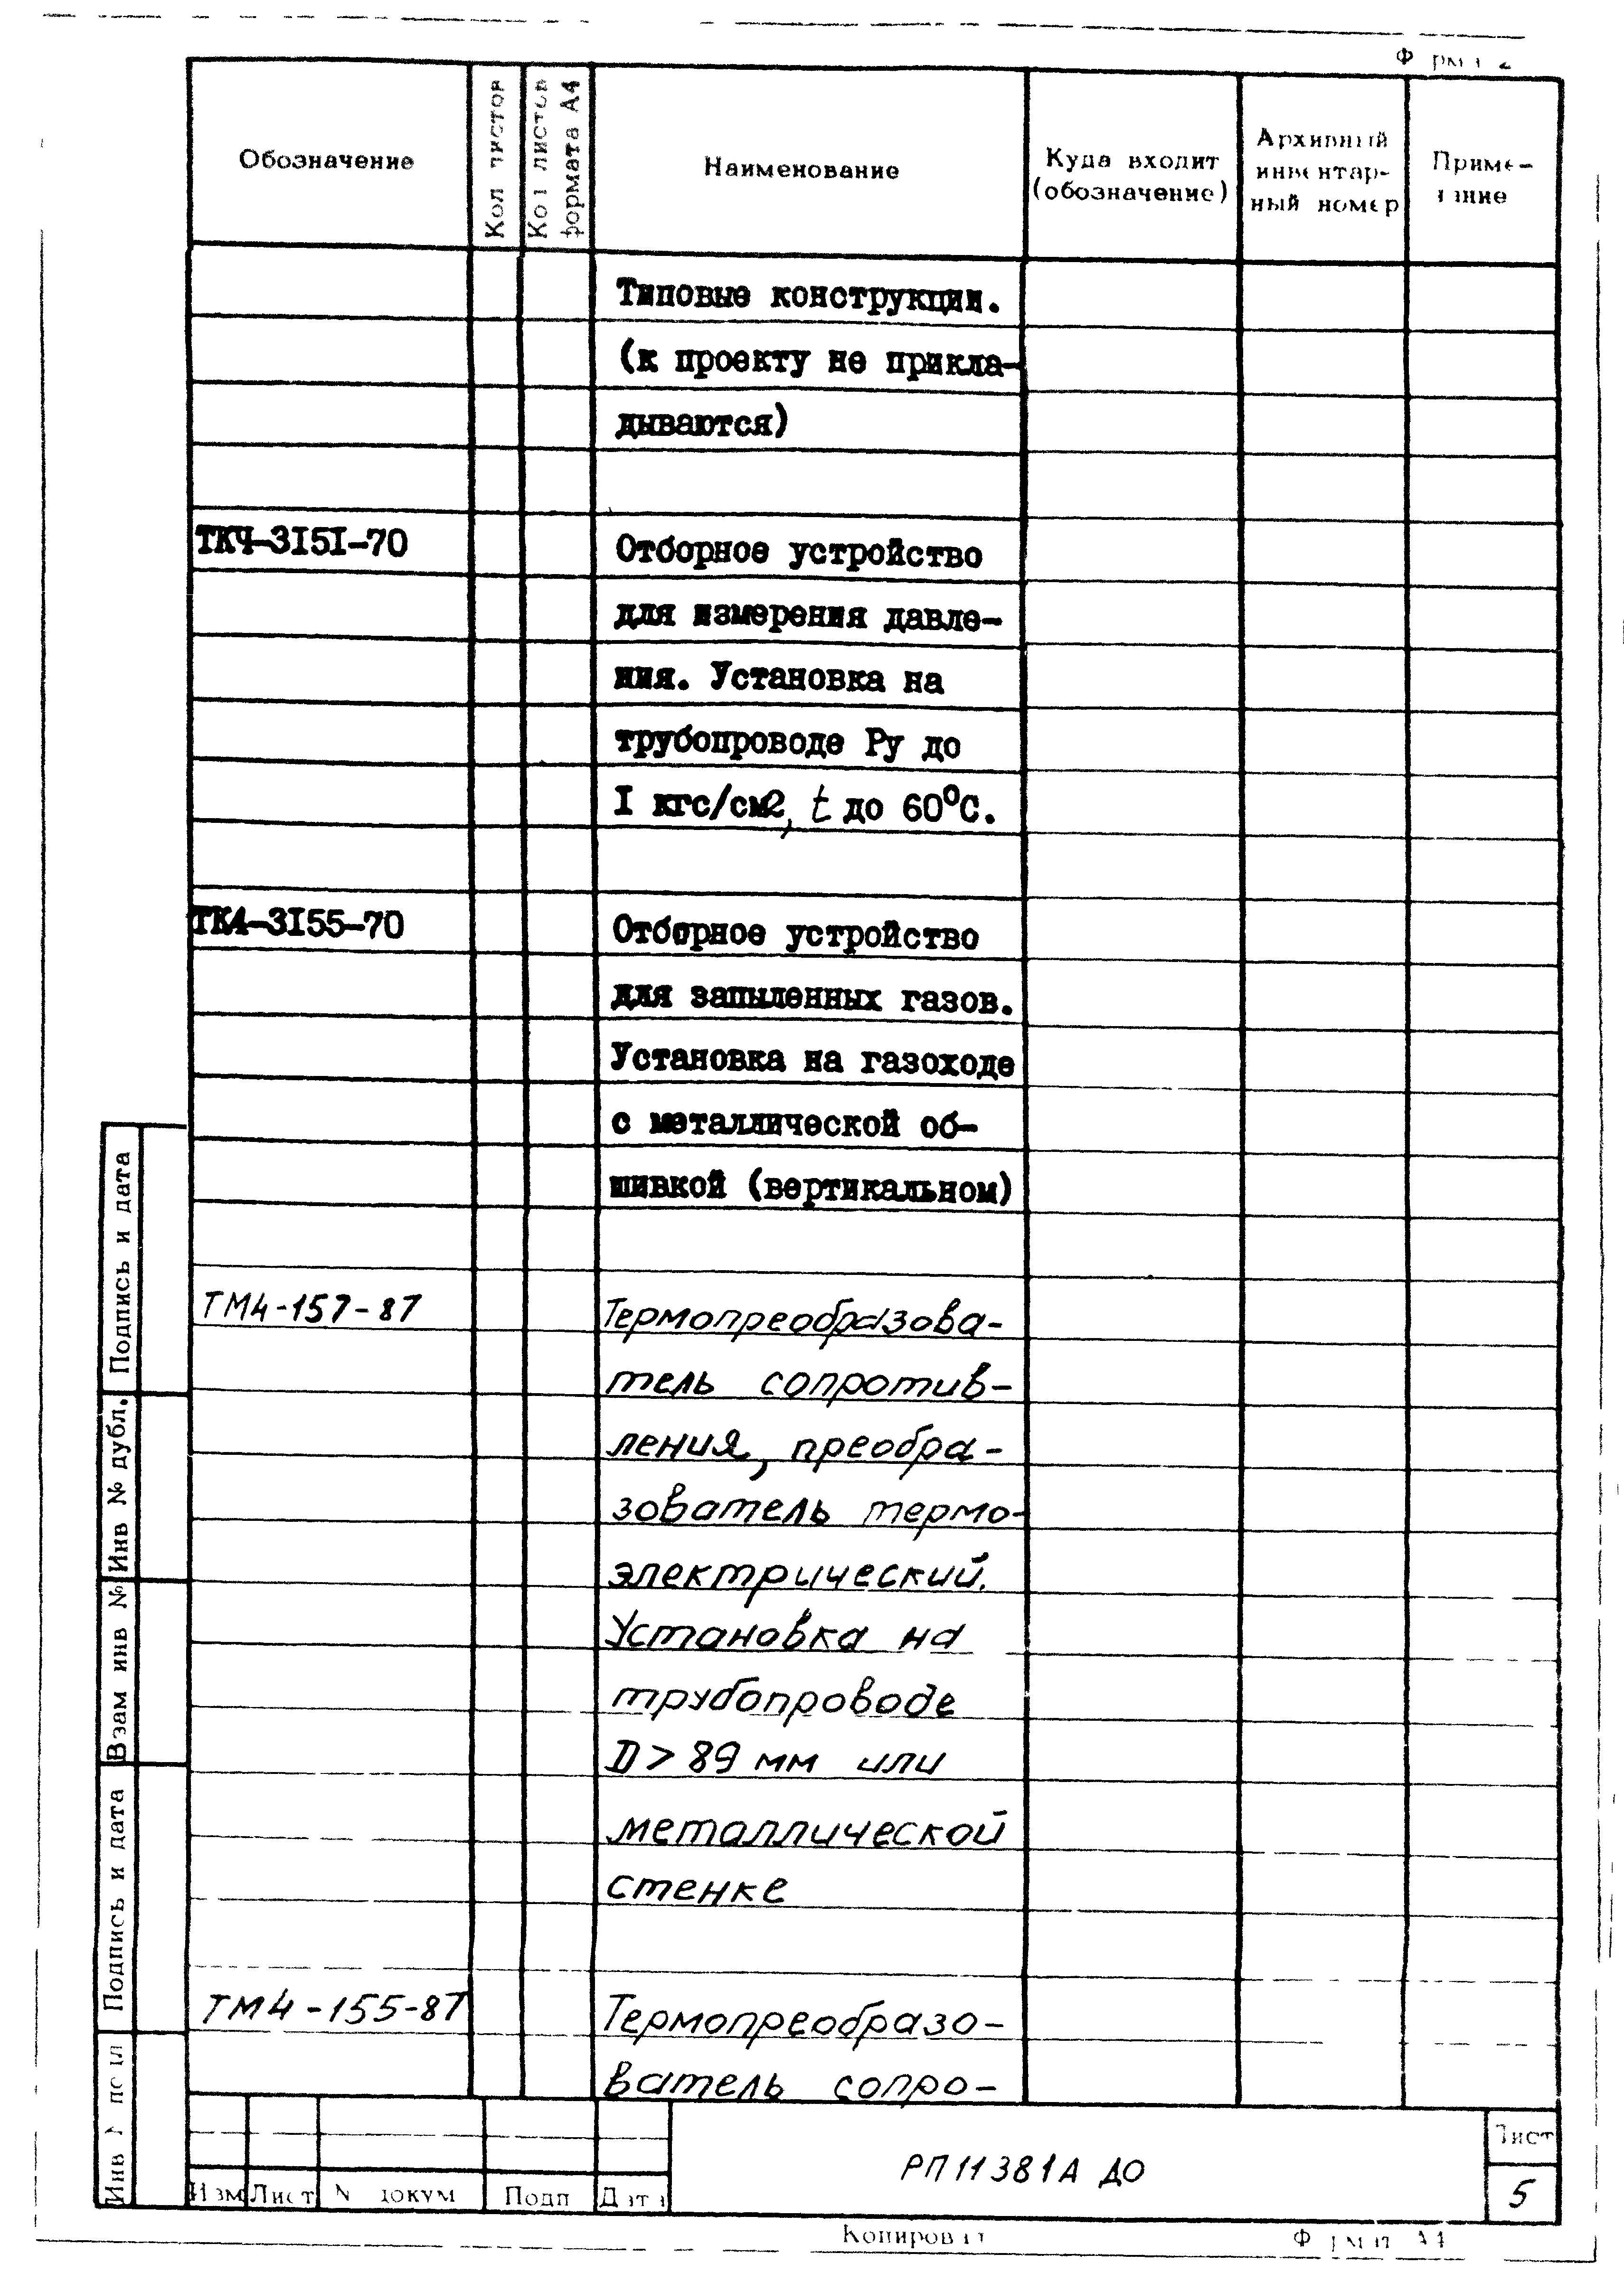 Обозначение
Кол листов
Кол листов
формата А4
Наименование
Куда входит
(обозначение)
Архивный
инвентар-
ный номер
Приме-
чание
Типовые конструкции.
(к проекту не прикла-
дываются)
ТКЧ-3I5I-70
Отборное устройство
для измерения давле-
ния. Установка на
трубопроводе Ру до
I кгс/см2, t до 60°С.
ТК4-3I55-70
Отборное устройство
для запыленных газов.
Установка на газоходе
с металлической об-
шивкой (вертикальном)
ТМ4-157-87
Термопреобразова-
тель сопротив-
ления, преобра-
зователь термо-
электрический.
Установка на
трубопроводе
D > 89 мм или
металлической
стенке
ТМ4-155-87
Термопреобразо-
ватель сопро-
Подпись и дата
Инв № дубл.
Взам инв №
Подпись и дата
Инв № подл
Изм Лист № докум Подп Дата
РП11381А ДО
Лист
5
Копировал
Формат А4